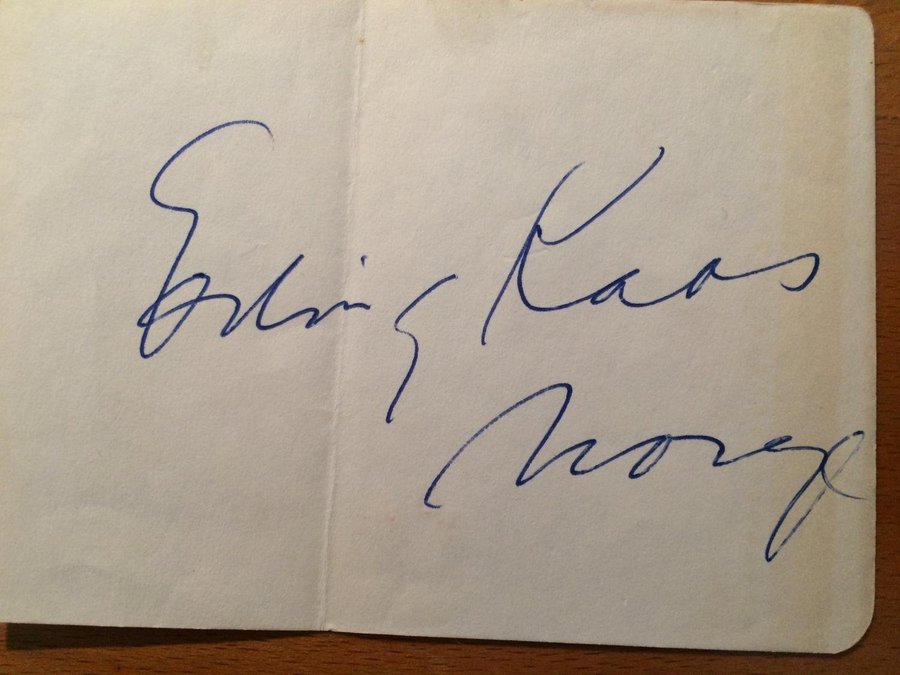 Erling Kaas
Norge